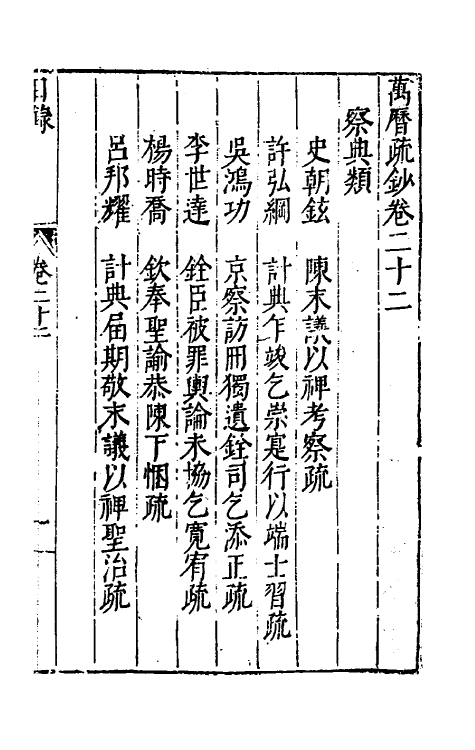 萬曆疏鈔卷二十二
察典類
史朝鉉　陳末議以裨考察疏
許弘綱　計典乍竣乞崇寔行以端士習疏
吳鴻功　京察訪冊獨遺銓司乞添正疏
李世達　銓臣被罪輿論未協乞寬宥疏
楊時喬　欽奉聖諭恭陳下悃疏
呂邦耀　計典届期敬末議以裨聖治疏
目錄　卷二十二